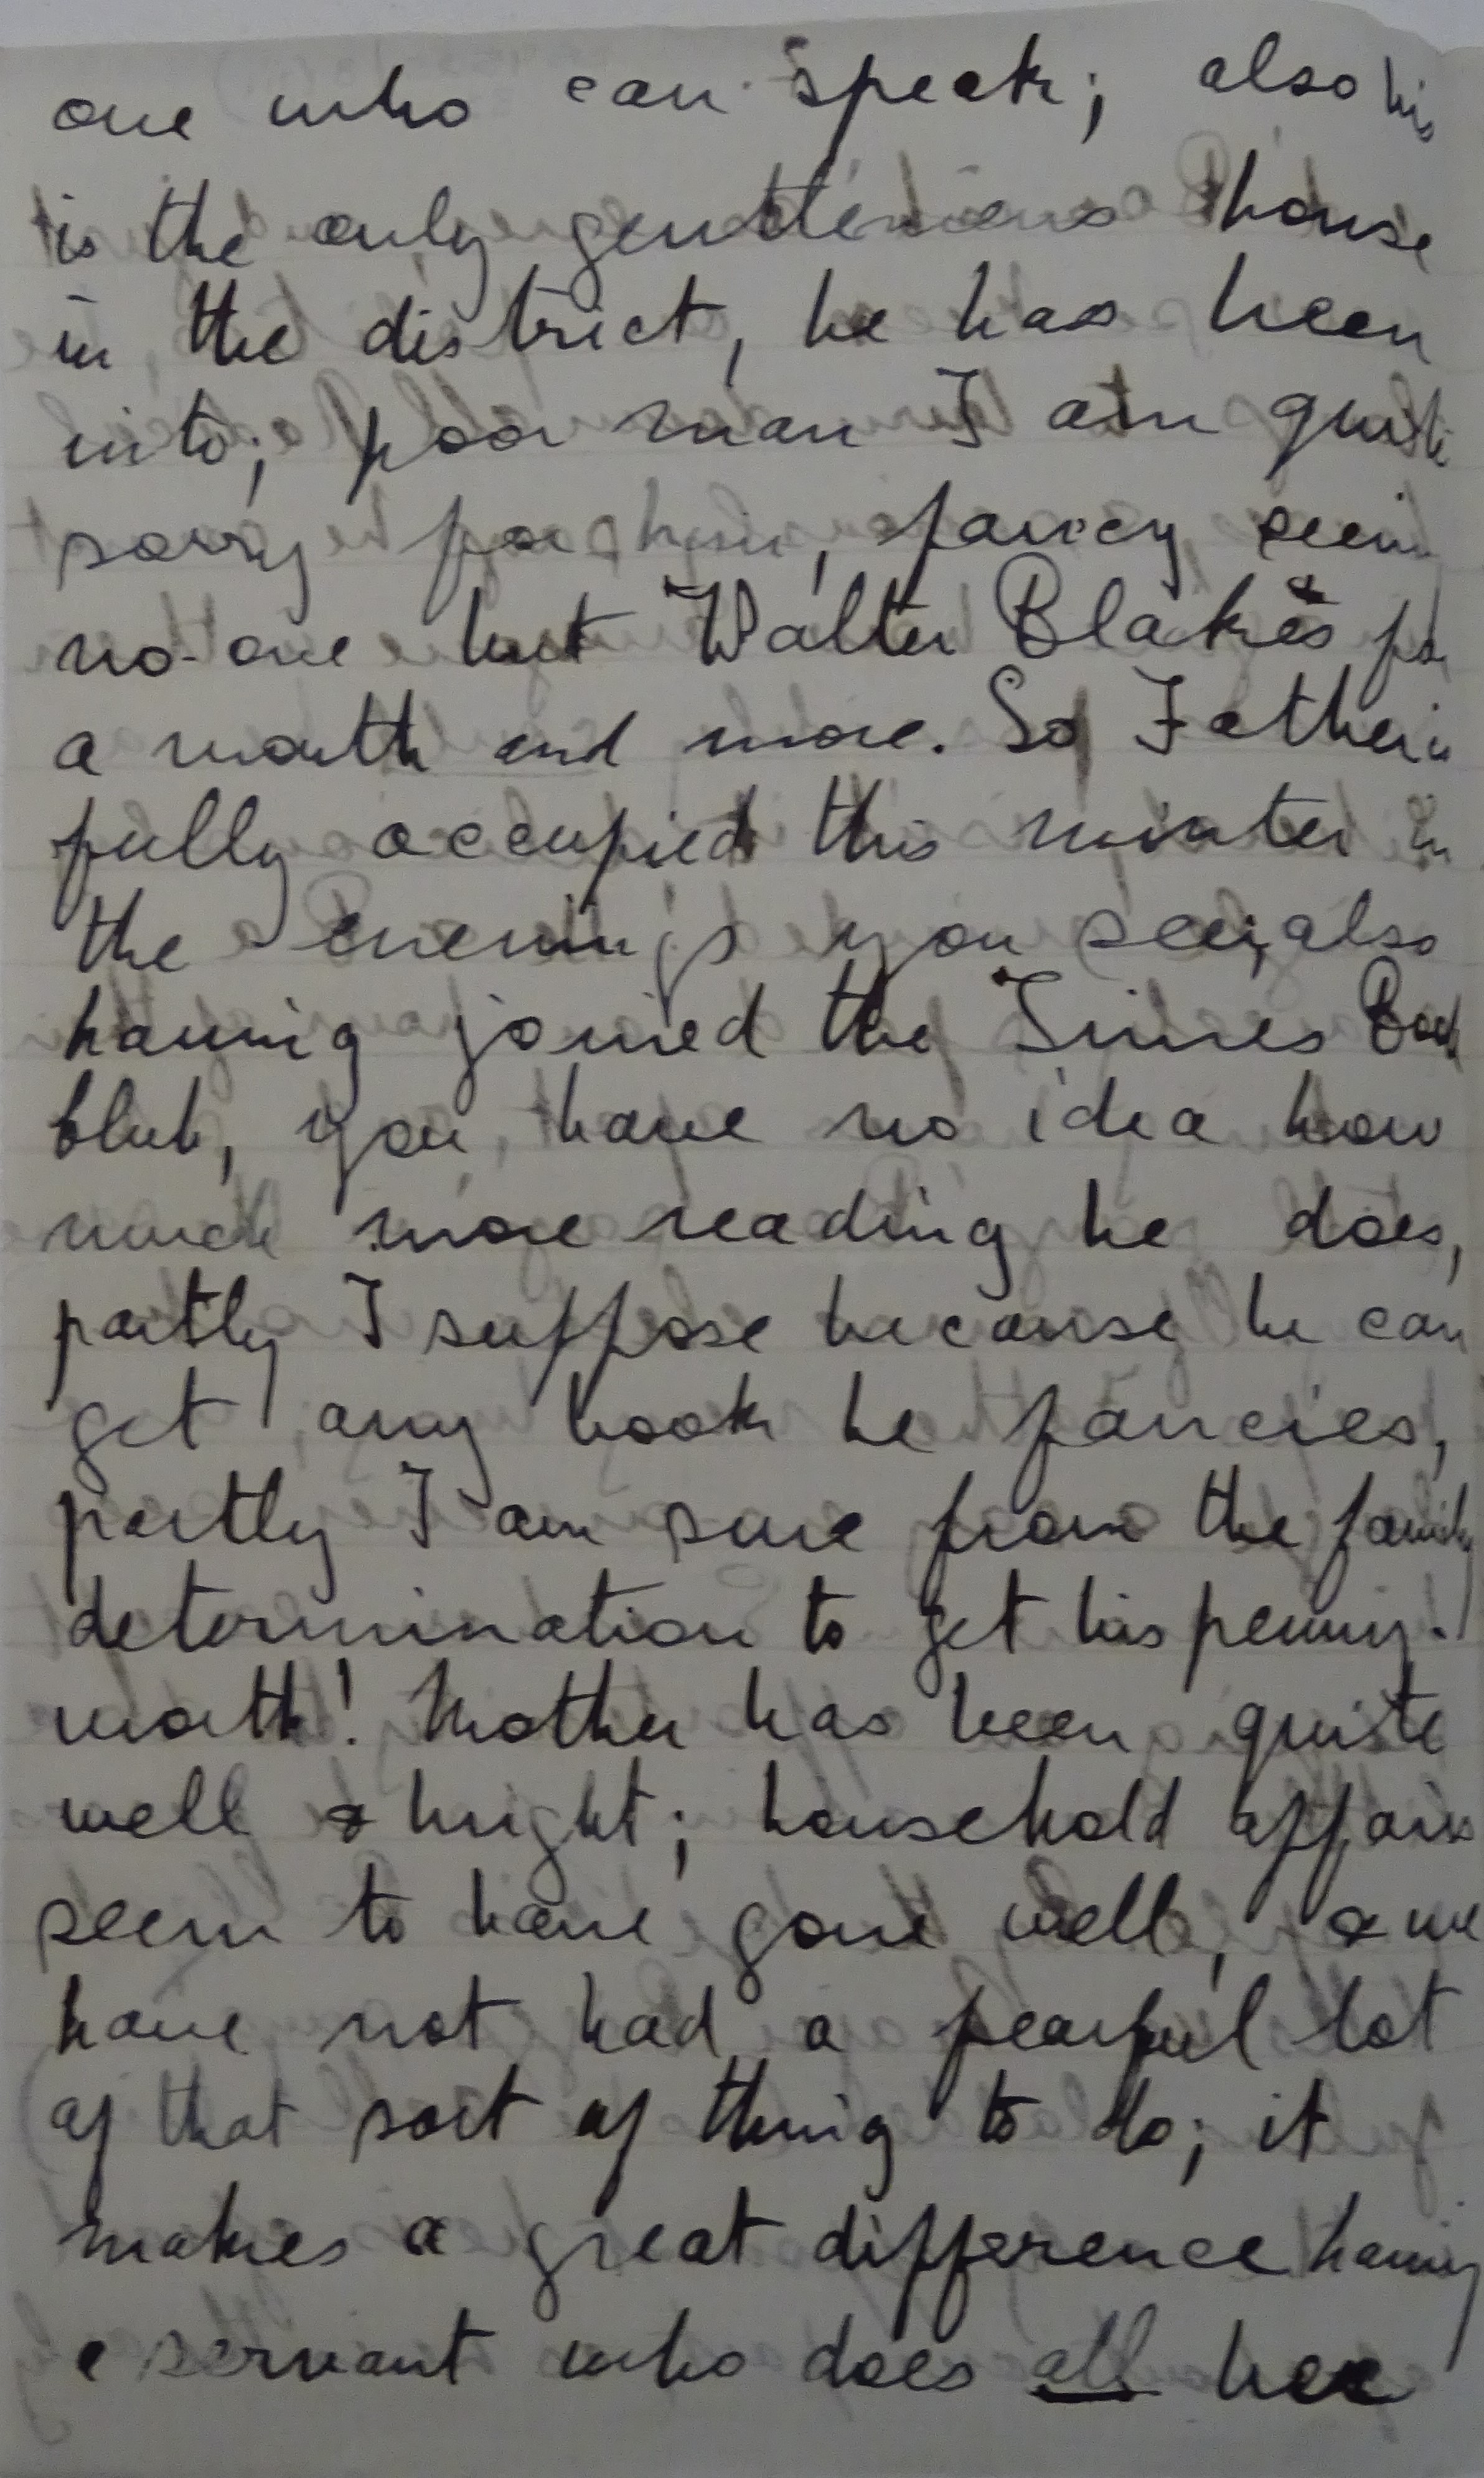 one who can speak; also his
is the only gentlemans house
in the district, he has been
into; poor man I am quite
sorry for him, fancy seeing
no-one but Walter Blakes for
a month and more. So Father is
fully occupied this winter in
the evenings you see; also
having joined the Times Book
Club, you have no idea how
much more reading he does,
partly I suppose because he can
get any book he fancies,
partly I am sure from the family
determination to get his penny-
worth! Mother has been quite
well & bright; household affairs
seem to have gone well, & we
have not had a fearful lot
of that sort of thing to do; it
makes a great difference having
a servant who does all her